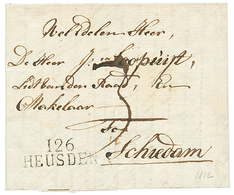 WelEdelen Heer,
De Heer
Lid van den Raad, En
Makelaar
te
Schiedam
126
HEUSDEN
1812